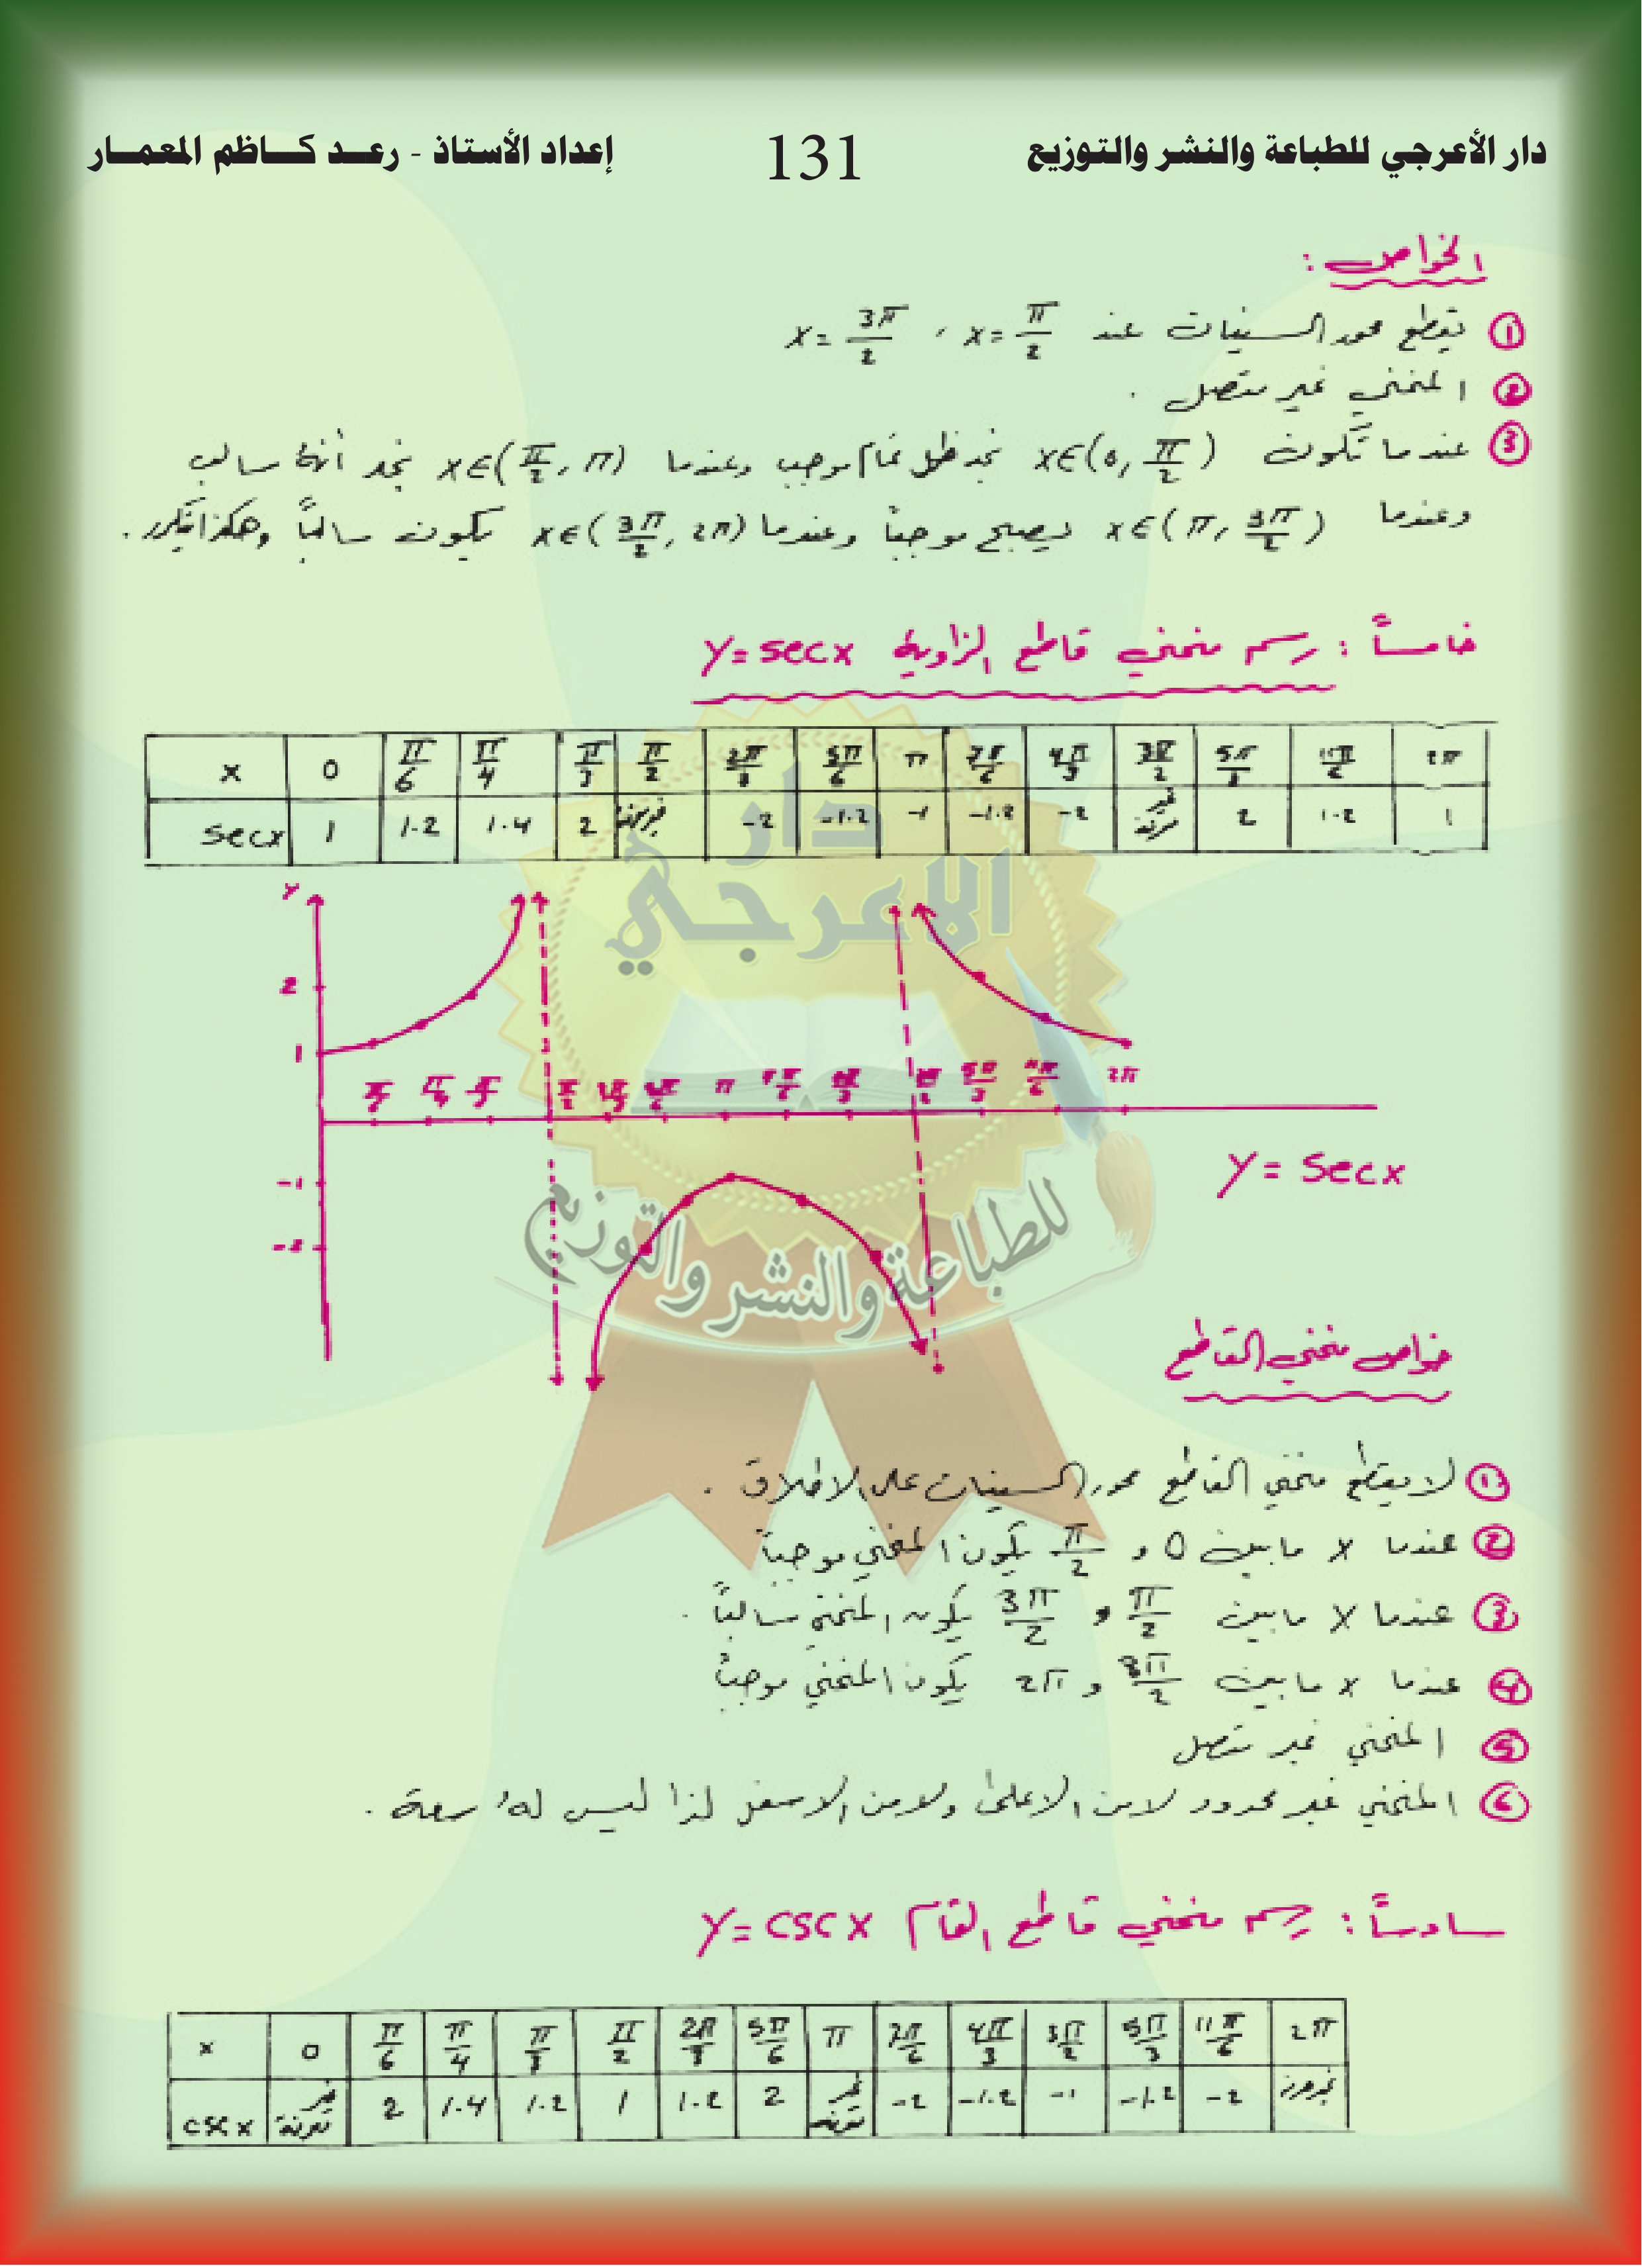 دار الأعرجي للطباعة والنشر والتوزيع 131 إعداد الأستاذ - رعد كاظم المعمار
الخواص :
① يقطع محور السينات عند x = π/2 ، x = 3π/2
② المنحني غير متصل .
③ عندما تكون x∈(0, π/2) نجد ظل تمام موجب وعندما x∈(π/2, π) نجد أنها سالب
وعندما x∈(π, 3π/2) يصبح موجباً وعندما x∈(3π/2, 2π) يكون سالباً وهكذا يتكرر .
خامساً : رسم منحني قاطع الزاوية y = secx
x 0 π/6 π/4 π/3 π/2 2π/3 5π/6 π 7π/6 4π/3 3π/2 5π/3 11π/6 2π
secx 1 1.2 1.4 2 -2 -1.2 -1 -1.2 -2 غير معرفة 2 1.2 1
y
2
1
π/2 2π/3 5π/6 π 7π/6 4π/3 3π/2 5π/3 11π/6 2π
-1
-2
y = secx
دار الاعرجي
للطباعة والنشر والتوزيع
خواص منحني القاطع
① لا يقطع منحني القاطع محور السينات على الاطلاق .
② عندما x مابين 0 و π/2 يكون المنحني موجباً
③ عندما x مابين π/2 و 3π/2 يكون المنحني سالباً .
④ عندما x مابين 3π/2 و 2π يكون المنحني موجباً
⑤ المنحني غير متصل
⑥ المنحني غير محدود لا من الاعلى ولا من الاسفل لذا ليس له سعة .
سادساً : رسم منحني قاطع التمام y = cscx
x 0 π/6 π/4 π/3 π/2 2π/3 5π/6 π 7π/6 4π/3 3π/2 5π/3 11π/6 2π
cscx غير معرفة 2 1.4 1.2 1 1.2 2 غير معرفة -2 -1.2 -1 -1.2 -2